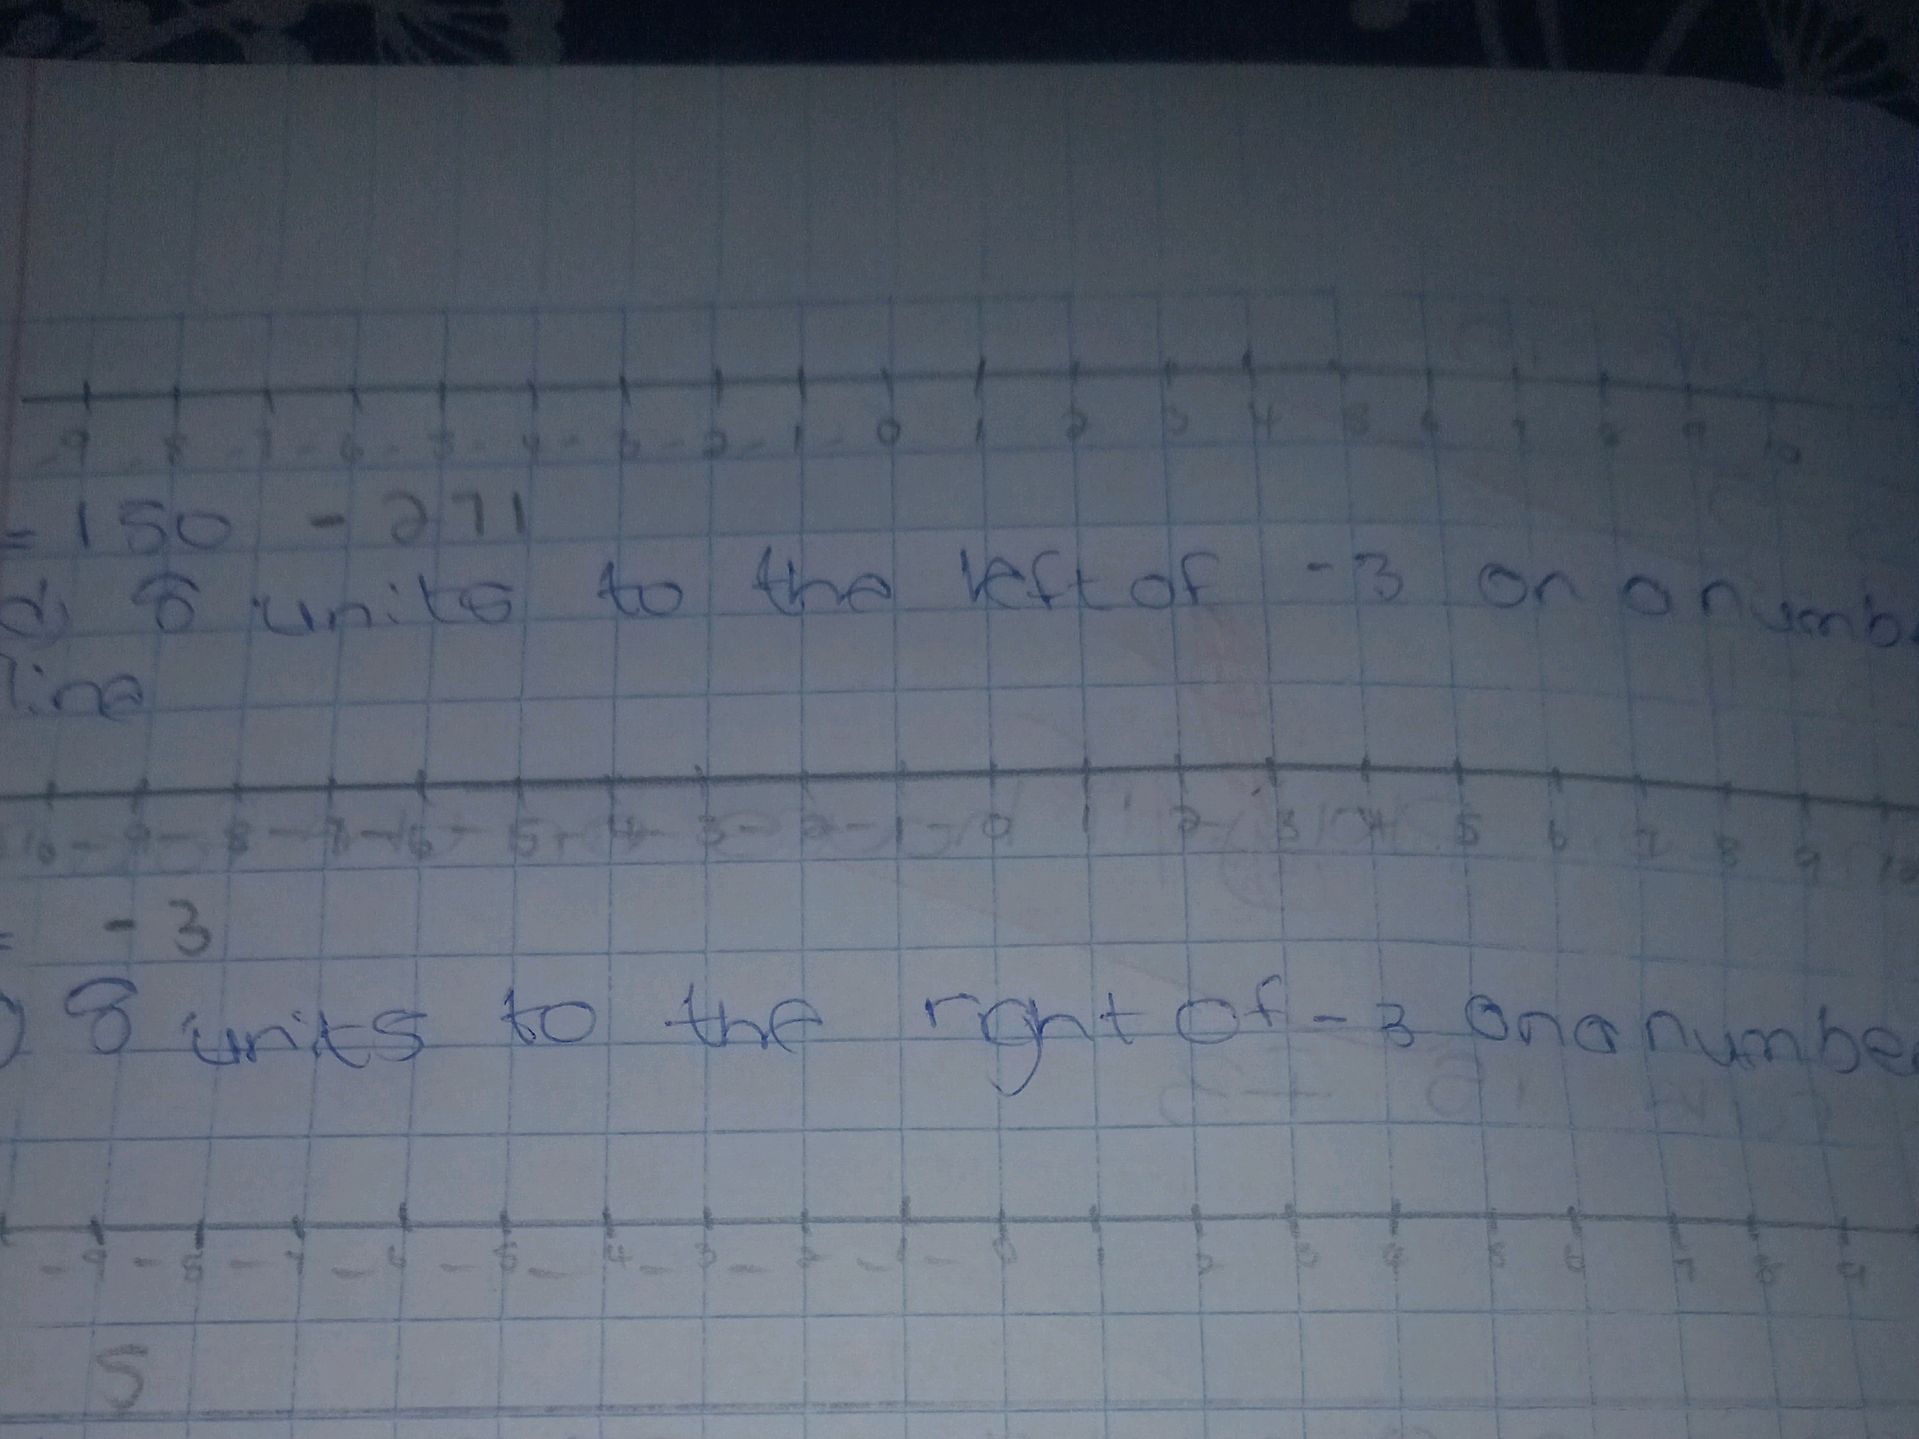 -9 -8 -7 -6 -5 -4 -3 -2 -1 0 1 2 3 4 5 6 7 8 9 10
= 150 - 271
d) 8 units to the left of -3 on a numbe
line
10 -9 -8 -7 -6 -5 -4 -3 -2 -1 0 1 2 3 4 5 6 7 8 9 10
= -3
) 8 units to the right of -3 on a number
-9 -8 -7 -6 -5 -4 -3 -2 -1 0 1 2 3 4 5 6 7 8 9
5